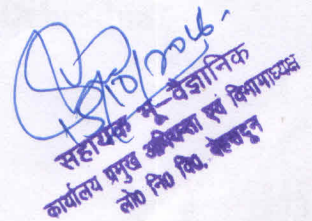 15/10/2016
सहायक भू-वैज्ञानिक
कार्यालय प्रमुख अभियन्ता एवं विभागाध्यक्ष
लो० नि० वि०, देहरादून